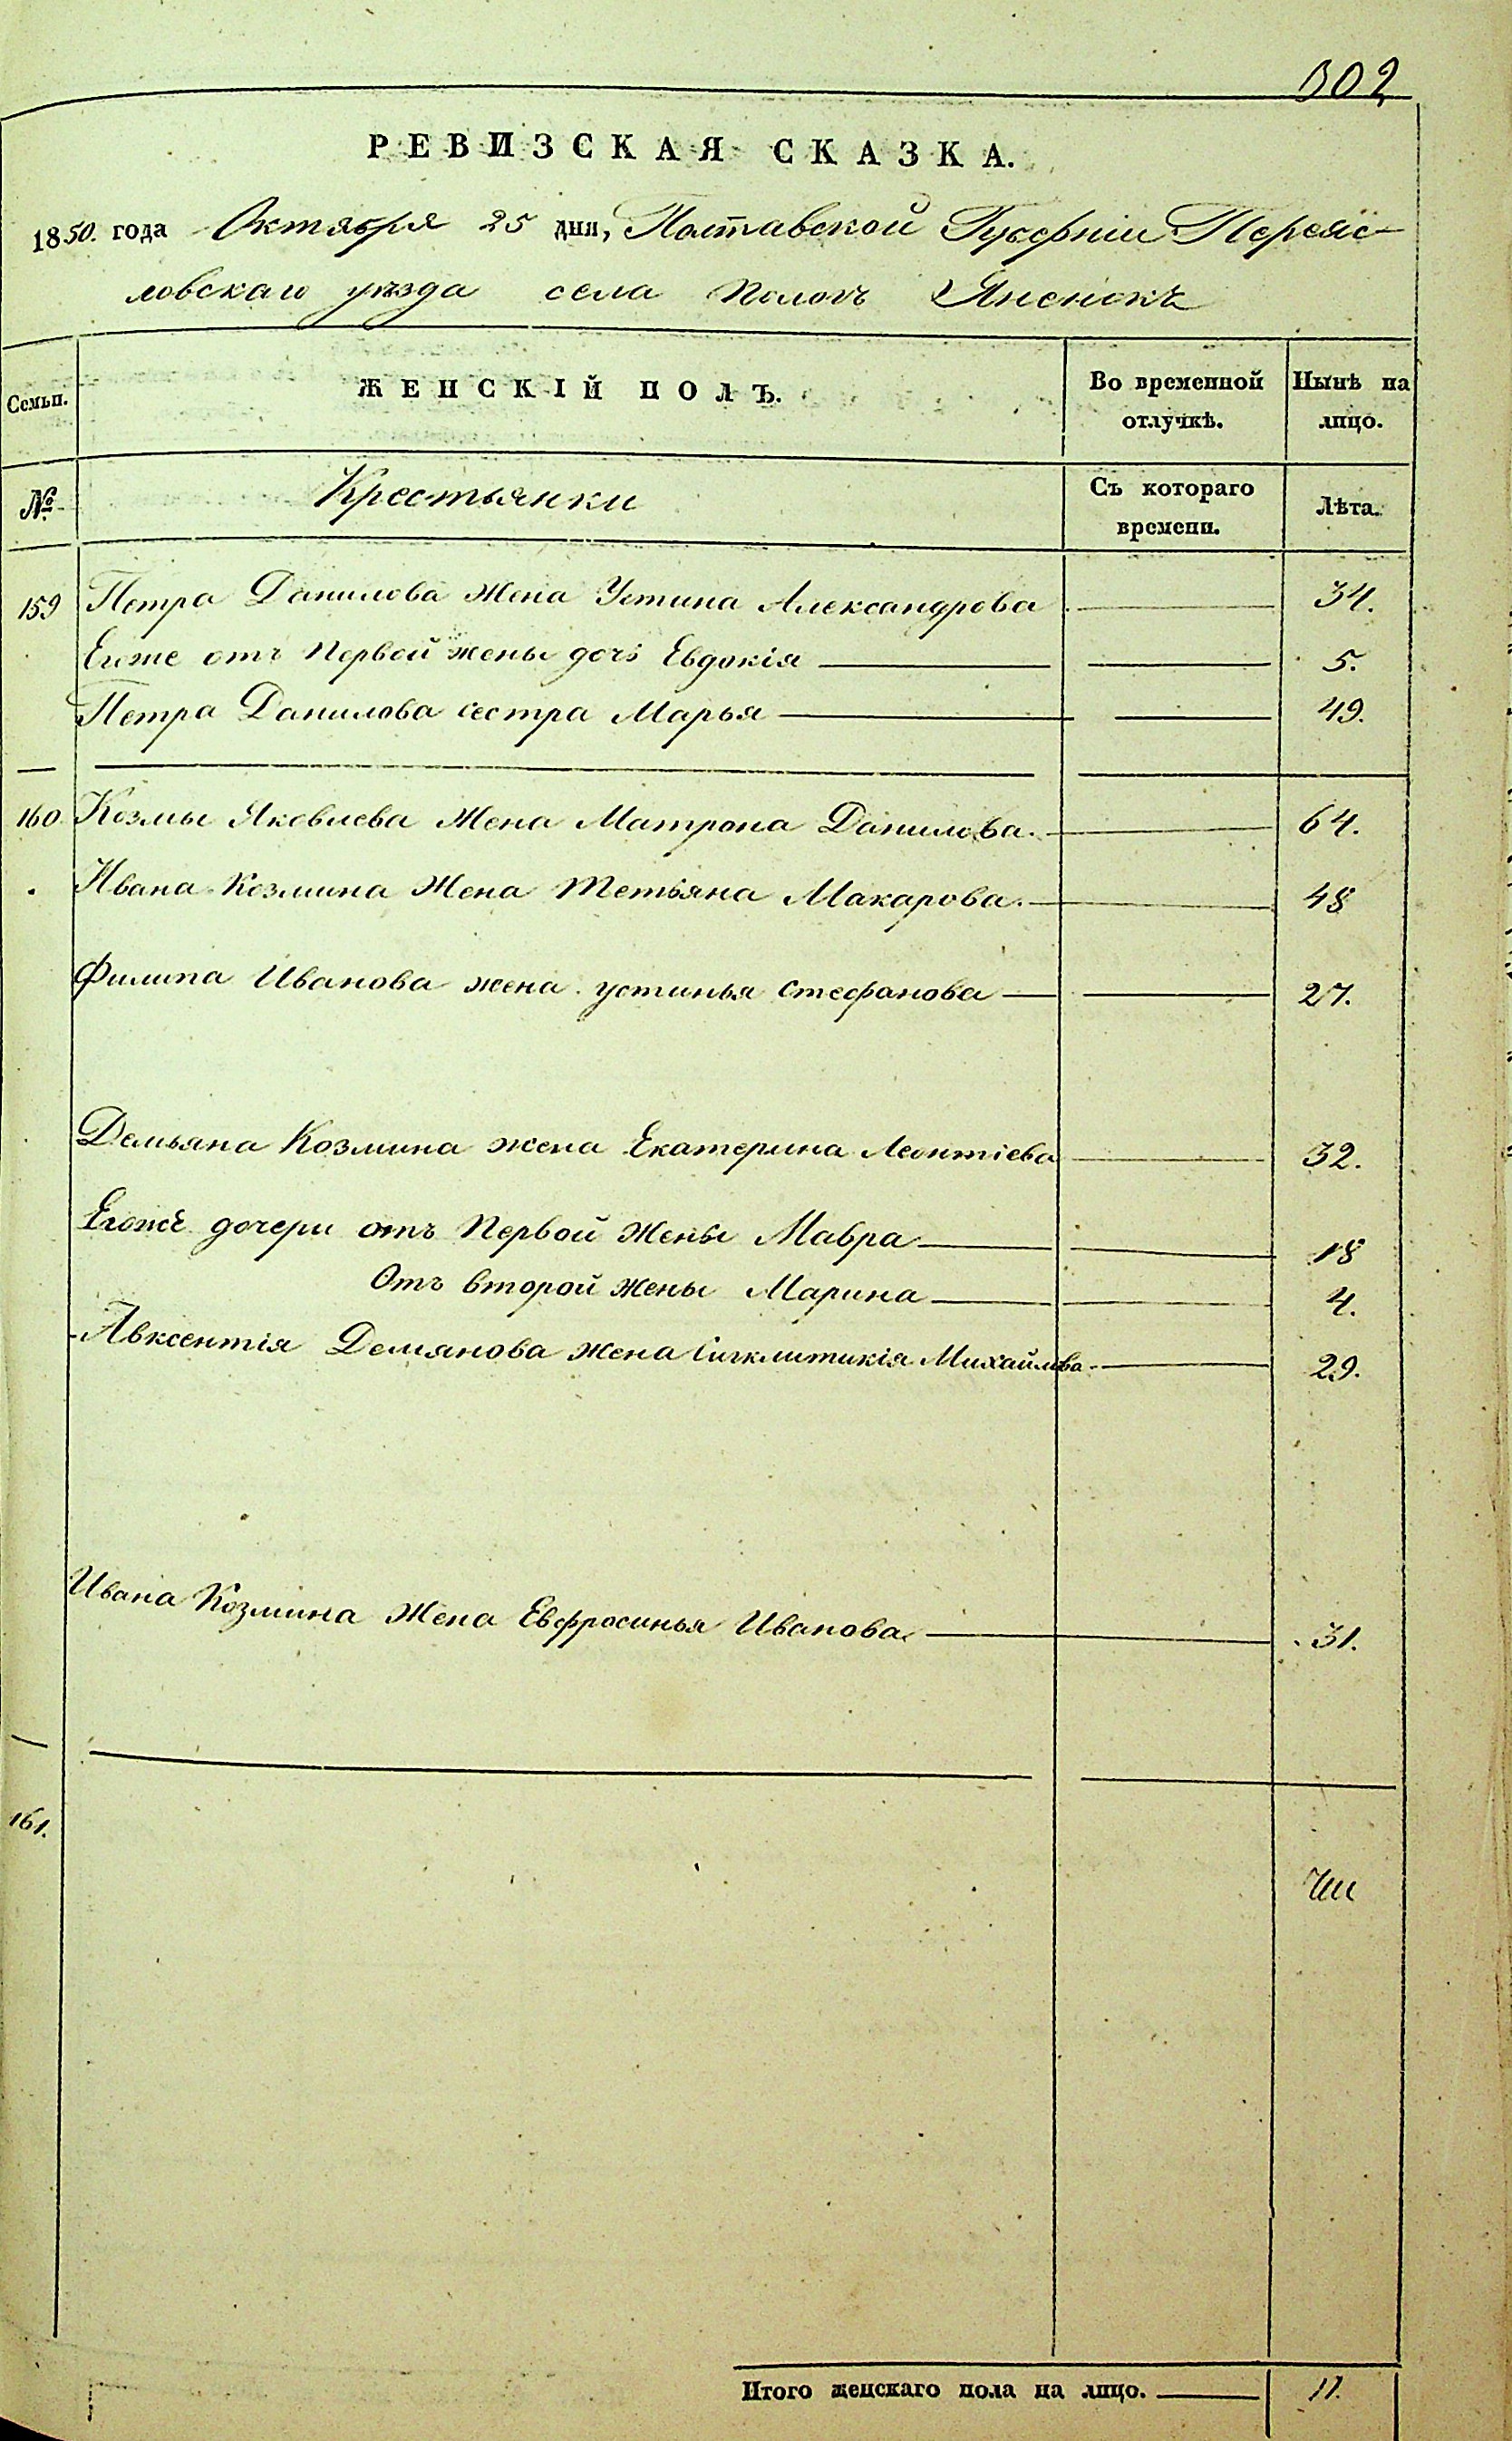 302
РЕВИЗСКАЯ СКАЗКА.
1850. года Октября 25 дня, Полтавской Губерніи Переяс-
ловскаго уѣзда села Пологъ Яненокъ
Семьи. ЖЕНСКІЙ ПОЛЪ. Во временной отлучкѣ. Нынѣ на лицо.
№ Крестьянки Съ котораго времени. Лѣта.
159 Петра Данилова жена Устина Александрова 34.
Егоже отъ первой жены дочь Евдокія 5.
Петра Данилова сестра Марья 49.
160 Козмы Яковлева жена Матрона Данилова. 64.
Ивана Козмина жена Тетьяна Макарова. 48
Филипа Иванова жена устинья Стефанова 27.
Демьяна Козмина жена Екатерина Леонтіева 32.
Егожъ дочери отъ Первой жены Мавра 18
Отъ второй жены Марина 4.
Авксентія Демянова жена Сигклитикія Михайлова 29.
Ивана Козмина жена Евфросинья Иванова 31.
161.
Итого женскаго пола на лицо. 11.